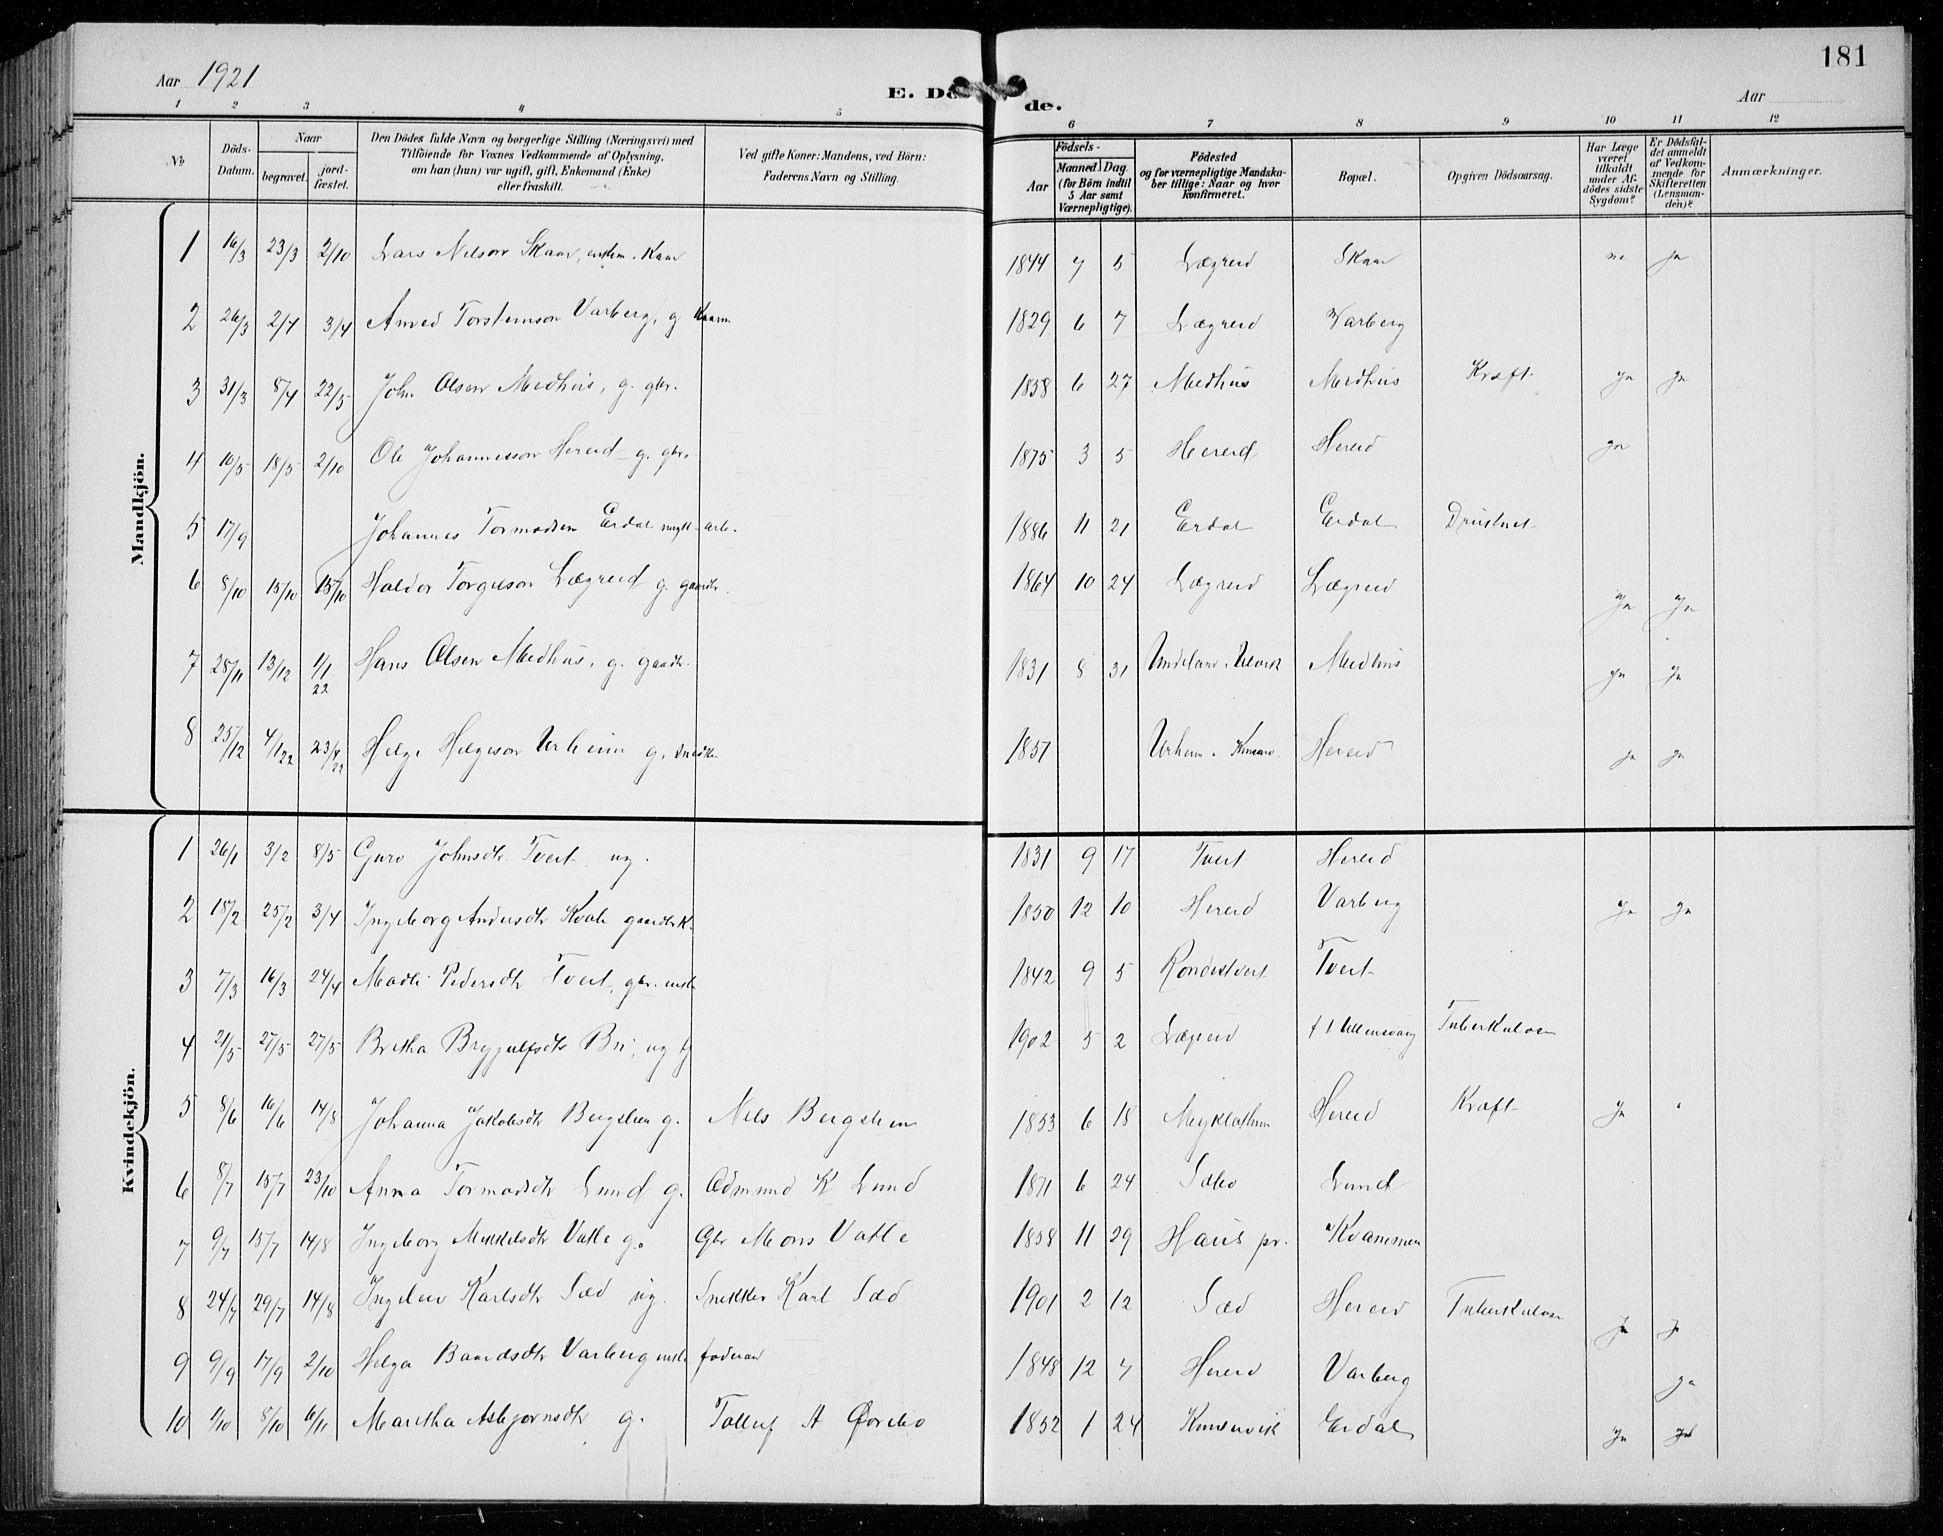 Aar 1921
E. Dö de.
181
Aar
1 2 3 4 5 6 7 8 9 10 11 12
No
Döds-Datum.
Naar
begravet.
jord-fæstet.
Den Dödes fulde Navn og borgerlige Stilling (Næringsvei) med
Tilföiende for Voxnes Vedkommende af Oplysning,
om han (hun) var ugift, gift, Enkemand (Enke)
eller fraskilt.
Ved gifte Koner: Mandens, ved Börn:
Faderens Navn og Stilling.
Födsels-
Aar
Maaned Dag
(for Börn indtil
5 Aar samt
Værnepligtige).
Födested
og for værnepligtige Mandska-
ber tillige: Naar og hvor
konfirmeret.
Bopæl.
Opgiven Dödsaarsag.
Har Læge
været
tilkaldt
under Af-
dödes sidste
Sygdom?
Er Dödsfal-
det anmeldt
af Vedkom-
mende for
Skifteretten
(Lensman-
den)?
Anmærkninger.
Mandkjön.
1 16/3 23/3 2/10 Lars Nilson Skaar, Kaar 1844 7 5 Lægreid Skaar ja
2 26/3 2/4 3/4 Torsteinson Varberg, g Kaarm. 1829 6 7 Lægreid Varberg
3 31/3 8/4 22/5 John Olsen Medhus, g. gbr. 1858 6 27 Medhus Medhus Kræft ja ja
4 10/5 18/5 2/10 Ole Johannesson Hereid g. gbr. 1875 3 5 Hereid Hereid ja
5 17/9 Johannes Tormodsen Erdal arb. 1886 11 21 Erdal Erdal Druknet
6 8/10 15/10 15/10 Haldor Torgilson Lægreid g. gaardbr. 1864 10 24 Lægreid Lægreid ja ja
7 28/11 13/12 1/1 22 Hans Olsen Medhus, g. gaardb. 1831 8 31 Ulvik Medhus ja ja
8 25/12 4/1 22 Helge Helgeson Urheim g. snedk. 1857 Urheim Hereid ja ja
Kvindekjön.
1 26/1 3/2 8/5 Guro Johnsdtr. Tveit ug. 1831 9 17 Tveit Hereid
2 18/2 25/2 3/4 Ingeborg Andersdtr Kvale gaardbrk. 1850 12 10 Hereid Varberg ja ja
3 7/3 16/3 24/4 Madli Pedersdtr Tveit, gbr. enke 1842 9 5 Rondestveit Tveit
4 21/5 27/5 27/5 Britha Brygjulfsdtr ug 1902 5 2 Lægreid Ullensvang Tuberkulose
5 8/6 16/6 14/8 Johanna Jakobsdtr Bergslien g. Nils Bergslien 1853 6 18 Myklethun Hereid Kræft ja "
6 8/7 15/7 23/10 Anna Tormodsdtr Lund g. Odmund K Lund 1871 6 24 Sæbø Lund
7 9/7 15/7 14/8 Ingeborg Mikkelsdtr Vatle g. Gbr Mons Vatle 1858 11 29 Haus pr. Kvammen
8 24/7 29/7 14/8 Karlsdtr Sæd ug. Snekker Karl Sæd 1901 2 12 Sæd Hereid Tuberkulose ja j
9 9/9 17/9 2/10 Helga Baardsdtr Varberg enke føderaad 1848 12 7 Hereid Varberg ja
10 1/10 8/10 6/11 Maritha Asbjørnsdtr g. Tollef A Øvrebø 1852 1 24 Kinservik Erdal ja ja